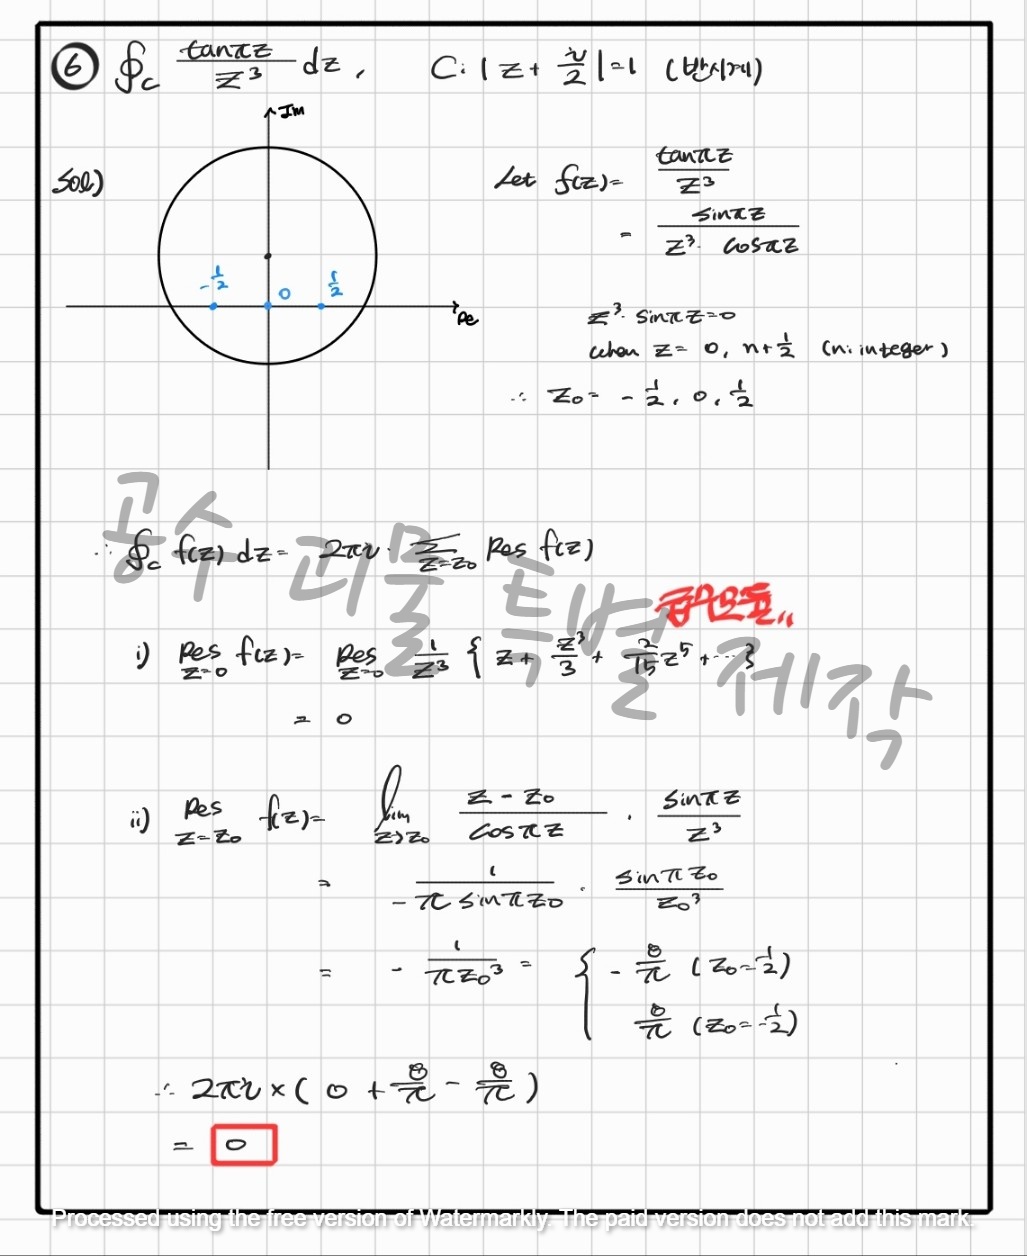 ⑥ ∮_C tanπz / z³ dz, C: |z + i/2| = 1 (반시계)
Im
Sol)
Let f(z) = tanπz / z³
= sinπz / z³· cosπz
-1/2 0 1/2
Re
z³· sinπz = 0
when z = 0, n + 1/2 (n: integer)
∴ z₀ = -1/2, 0, 1/2
공수 과물 특발 제작
∴ ∮_C f(z) dz = 2πi · Σ_{z=z₀} Res f(z)
i) Res_{z=0} f(z) = Res_{z=0} 1/z³ { z + z³/3 + 2/15 z⁵ + ··· }
= 0
ii) Res_{z=z₀} f(z) = lim_{z→z₀} z - z₀ / cosπz · sinπz / z³
= 1 / -π sinπz₀ · sinπz₀ / z₀³
= - 1 / πz₀³ = { - 8/π (z₀ = 1/2)
8/π (z₀ = -1/2)
∴ 2πi × ( 0 + 8/π - 8/π )
= 0
Processed using the free version of Watermarkly. The paid version does not add this mark.